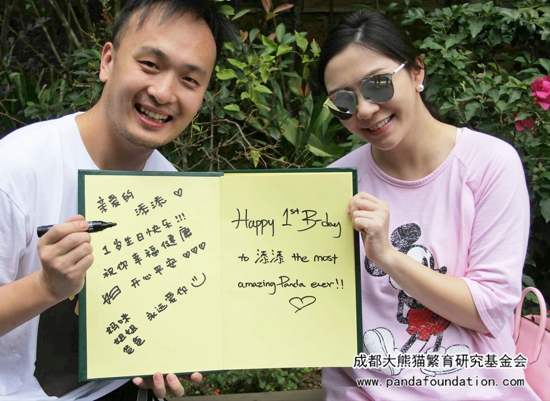 亲爱的
添添 ♡
1岁生日快乐!!!
祝你幸福健康
开心平安 ♡♡♡
永远爱你
妈咪
姐姐
爸爸
Happy 1st B-day
to 添添 the most
amazing Panda ever!!
♡
成都大熊猫繁育研究基金会
www.pandafoundation.com